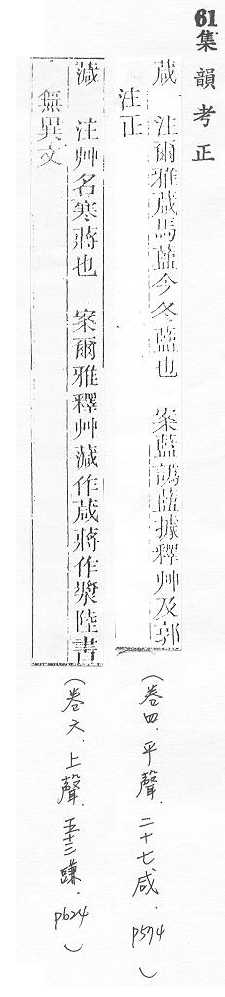 61 集韻考正
葴 注爾雅葴馬藍今冬藍也 案藍譌蓝據釋艸及郭
注正
(卷四.平聲.二十七咸.p574)
𧂇 注艸名寒蔣也 案爾雅釋艸𧂇作葴蔣作漿陸書
無異文
(卷六.上聲.五十三豏.p624)